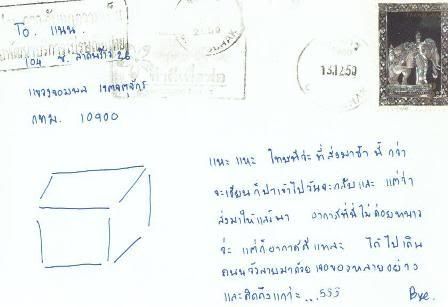 To. แนน
104 ซ. ลาดพร้าว 26
แขวงจอมพล เขตจตุจักร
กทม. 10900
13.12.50
แหะ แหะ โทษทีจ่ะ ที่ส่งมาช้า พี่ กว่า
จะเขียน ก็ปาเข้าไปวันจะกลับและ แต่ว่า
ส่งมาให้แล้วนา อากาศที่นี่ไม่ค่อยหนาว
จ่ะ แต่ก็อากาศดีแหละ ได้ไปเดิน
ถนน มาด้วย เจอของหลายอย่าง
และคิดถึงแกว่ะ ..555
Bye.